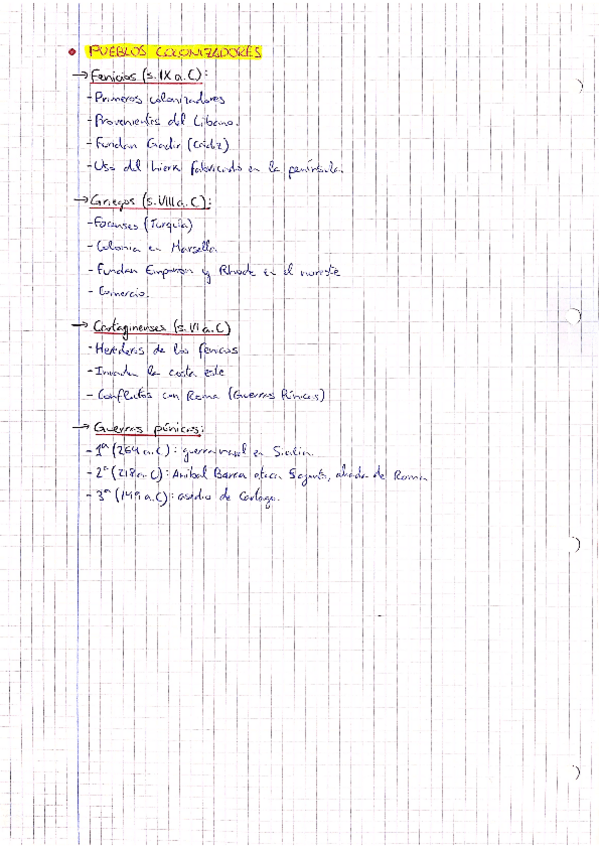 • PUEBLOS COLONIZADORES
→ Fenicios (s. IX a.C):
- Primeros colonizadores
- Provenientes del Líbano.
- Fundan Gadir (Cádiz)
- Uso del hierro fabricado en la península.
→ Griegos (s. VIII a.C):
- Focenses (Turquía)
- Colonia en Marsella
- Fundan Emporion y Rhode en el noreste
- Comercio.
→ Cartagineses (s. VI a.C)
- Herederos de los fenicios
- Invaden la costa este
- Conflictos con Roma (Guerras Púnicas)
→ Guerras púnicas:
- 1ª (264 a.C): guerra naval en Sicilia.
- 2ª (218 a.C): Aníbal Barca ataca Sagunto, aliada de Roma
- 3ª (149 a.C): asedio de Cartago.